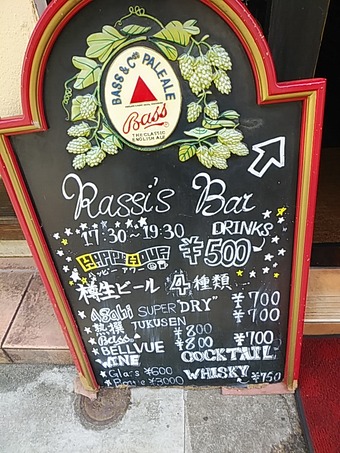 BASS & Co's PALE ALE
Bass
THE CLASSIC
ENGLISH ALE
Rassi's Bar
17:30~19:30 DRINKS
HAPPY HOUR ¥500~
ハッピーアワー
樽生ビール 4種類
Asahi SUPER "DRY" ¥700
熟撰 JUKUSEN ¥700
Bass ¥800 ¥700
BELLVUE ¥800 COCKTAIL
WINE WHISKY ¥750
Glass ¥600
¥3000